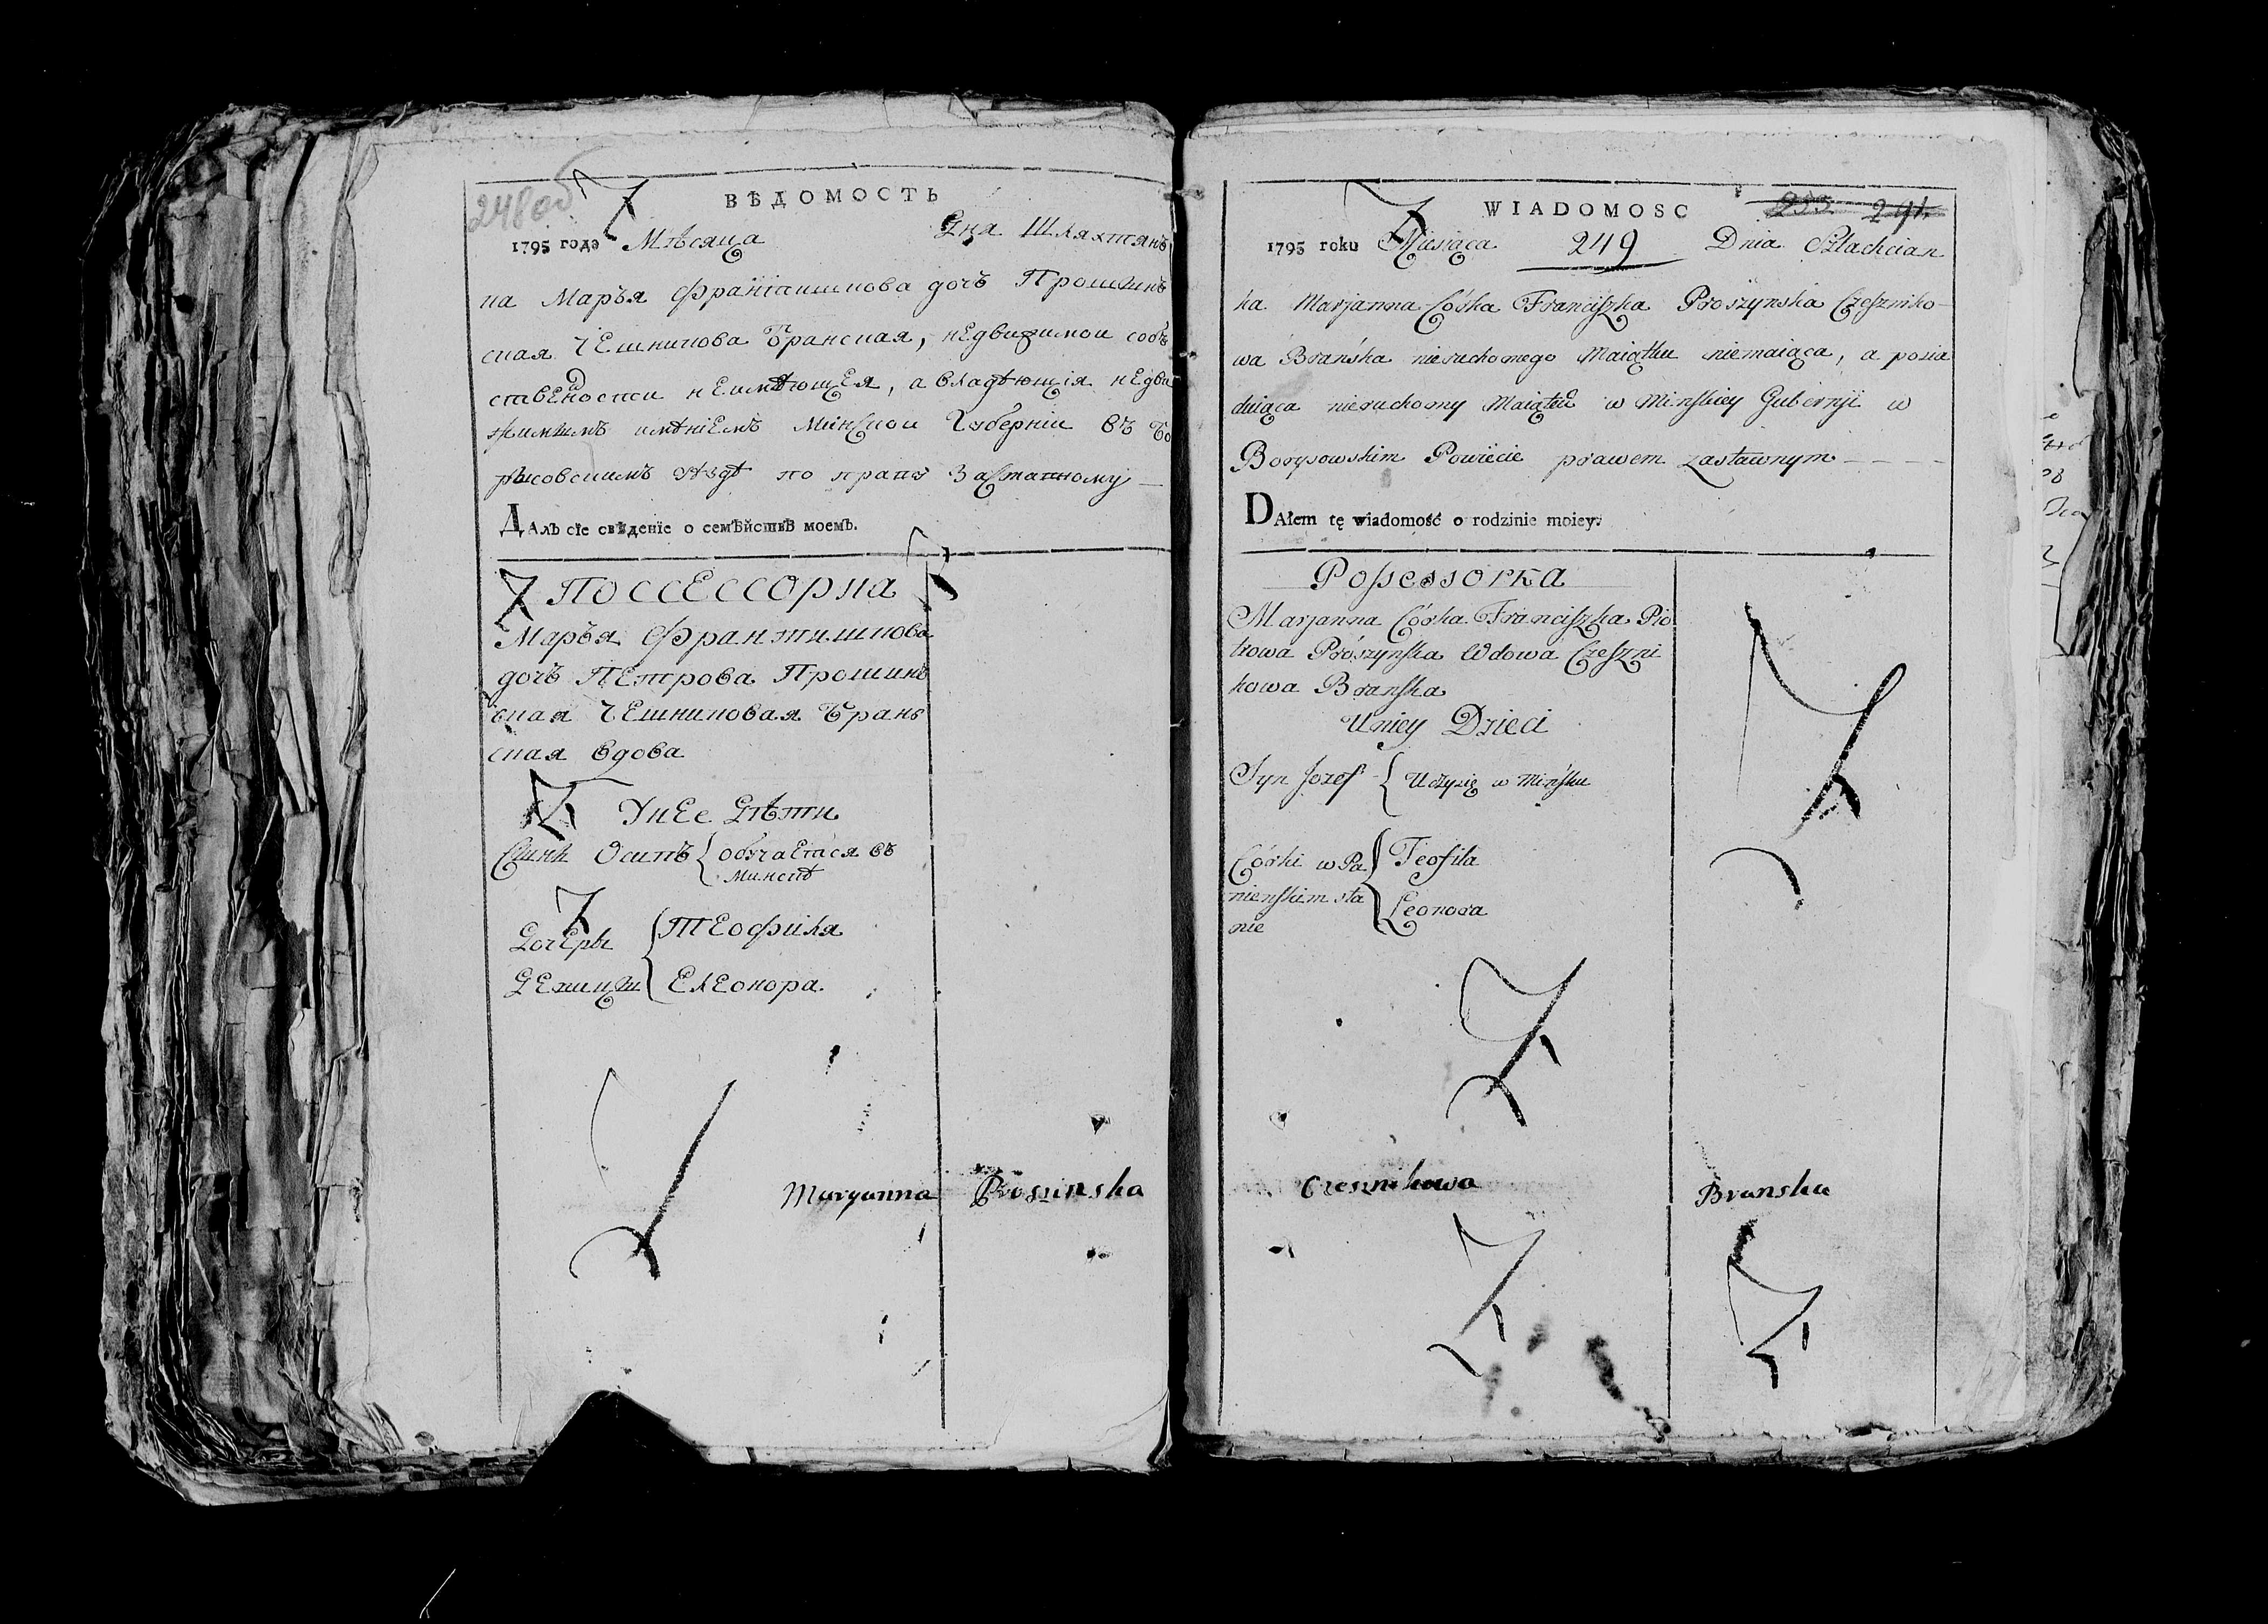 248 об
ВѢДОМОСТЬ
1795 года Мѣсяца Дня Шляхтян
ка Марья Францишкова дочъ Прошин
ская Чешникова Бранская, недвижимой соб
ственности неимѣющея, а владѣющія недви
жимимъ имѣніемъ Минской Губерніи въ Бо
рисовскимъ уѣздѣ по праву Заставному
ДАлъ сїе свѣденїе о семѣйствѣ моемъ.
Поссессорка
Марья Францишкова
дочъ Петрова Прошин
ская Чешниковая Бран
ская вдова
У нее Дѣти
Сынъ Осипъ { обучается въ
Минскѣ
Дочеры { Теофиля
Девицы { Елеонора.
Maryanna Proszinska
WIADOMOSC 291.
1795 roku Miesiąca 249 Dnia Szlachcian
ka Marjanna Córka Franciszka Proszynska Czeszniko
wa Brańska nieruchomego Maiątku niemaiąca, a posia
daiąca nieruchomy Maiątek w Minskiey Gubernji w
Borysowskim Powiecie prawem zastawnym
DAłem tę wiadomość o rodzinie moiey.
Possessorka
Marjanna Córka Franciszka Pio
trowa Prószynska Wdowa Czeszni
kowa Branska
U niey Dzieci
Syn Jozef { Uczy się w Mińsku
Córki w Pa { Teofila
nienskim sta { Leonora
nie
Czesnikowa Branska